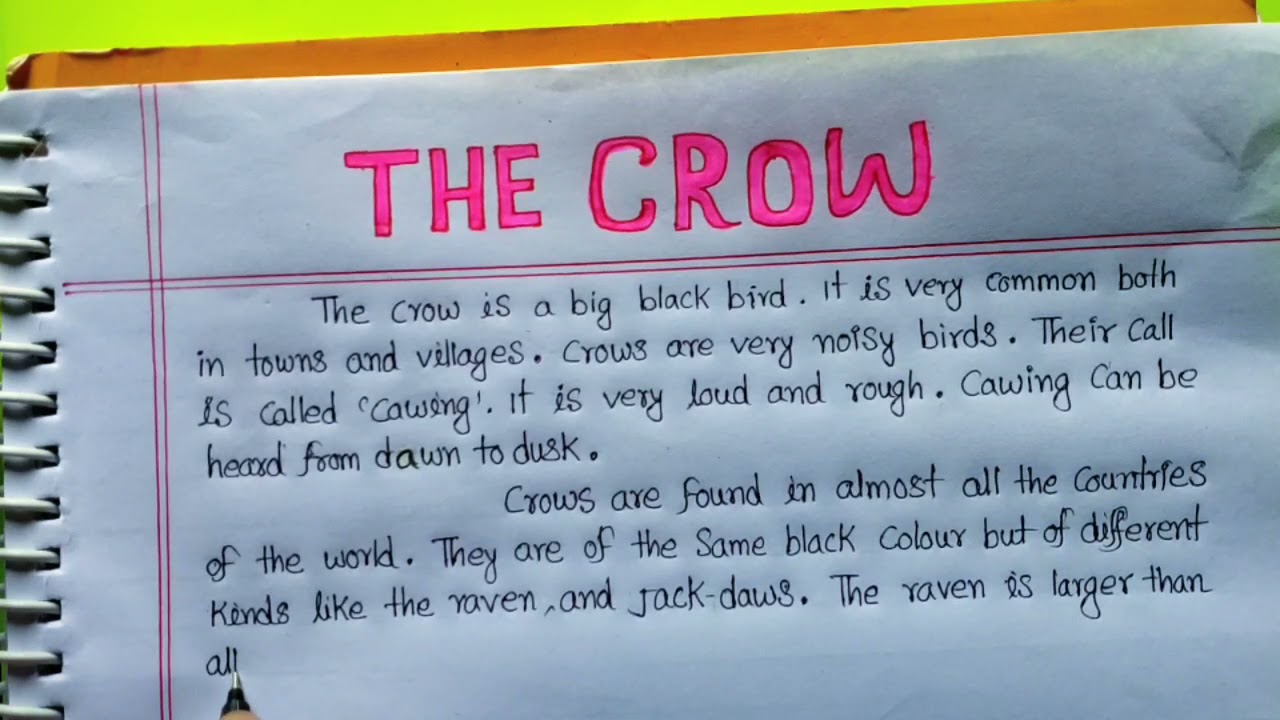 THE CROW
The crow is a big black bird. It is very common both
in towns and villages. Crows are very noisy birds. Their call
is called 'Cawing'. It is very loud and rough. Cawing can be
heard from dawn to dusk.
Crows are found in almost all the countries
of the world. They are of the same black colour but of different
kinds like the raven, and jack-daws. The raven is larger than
all